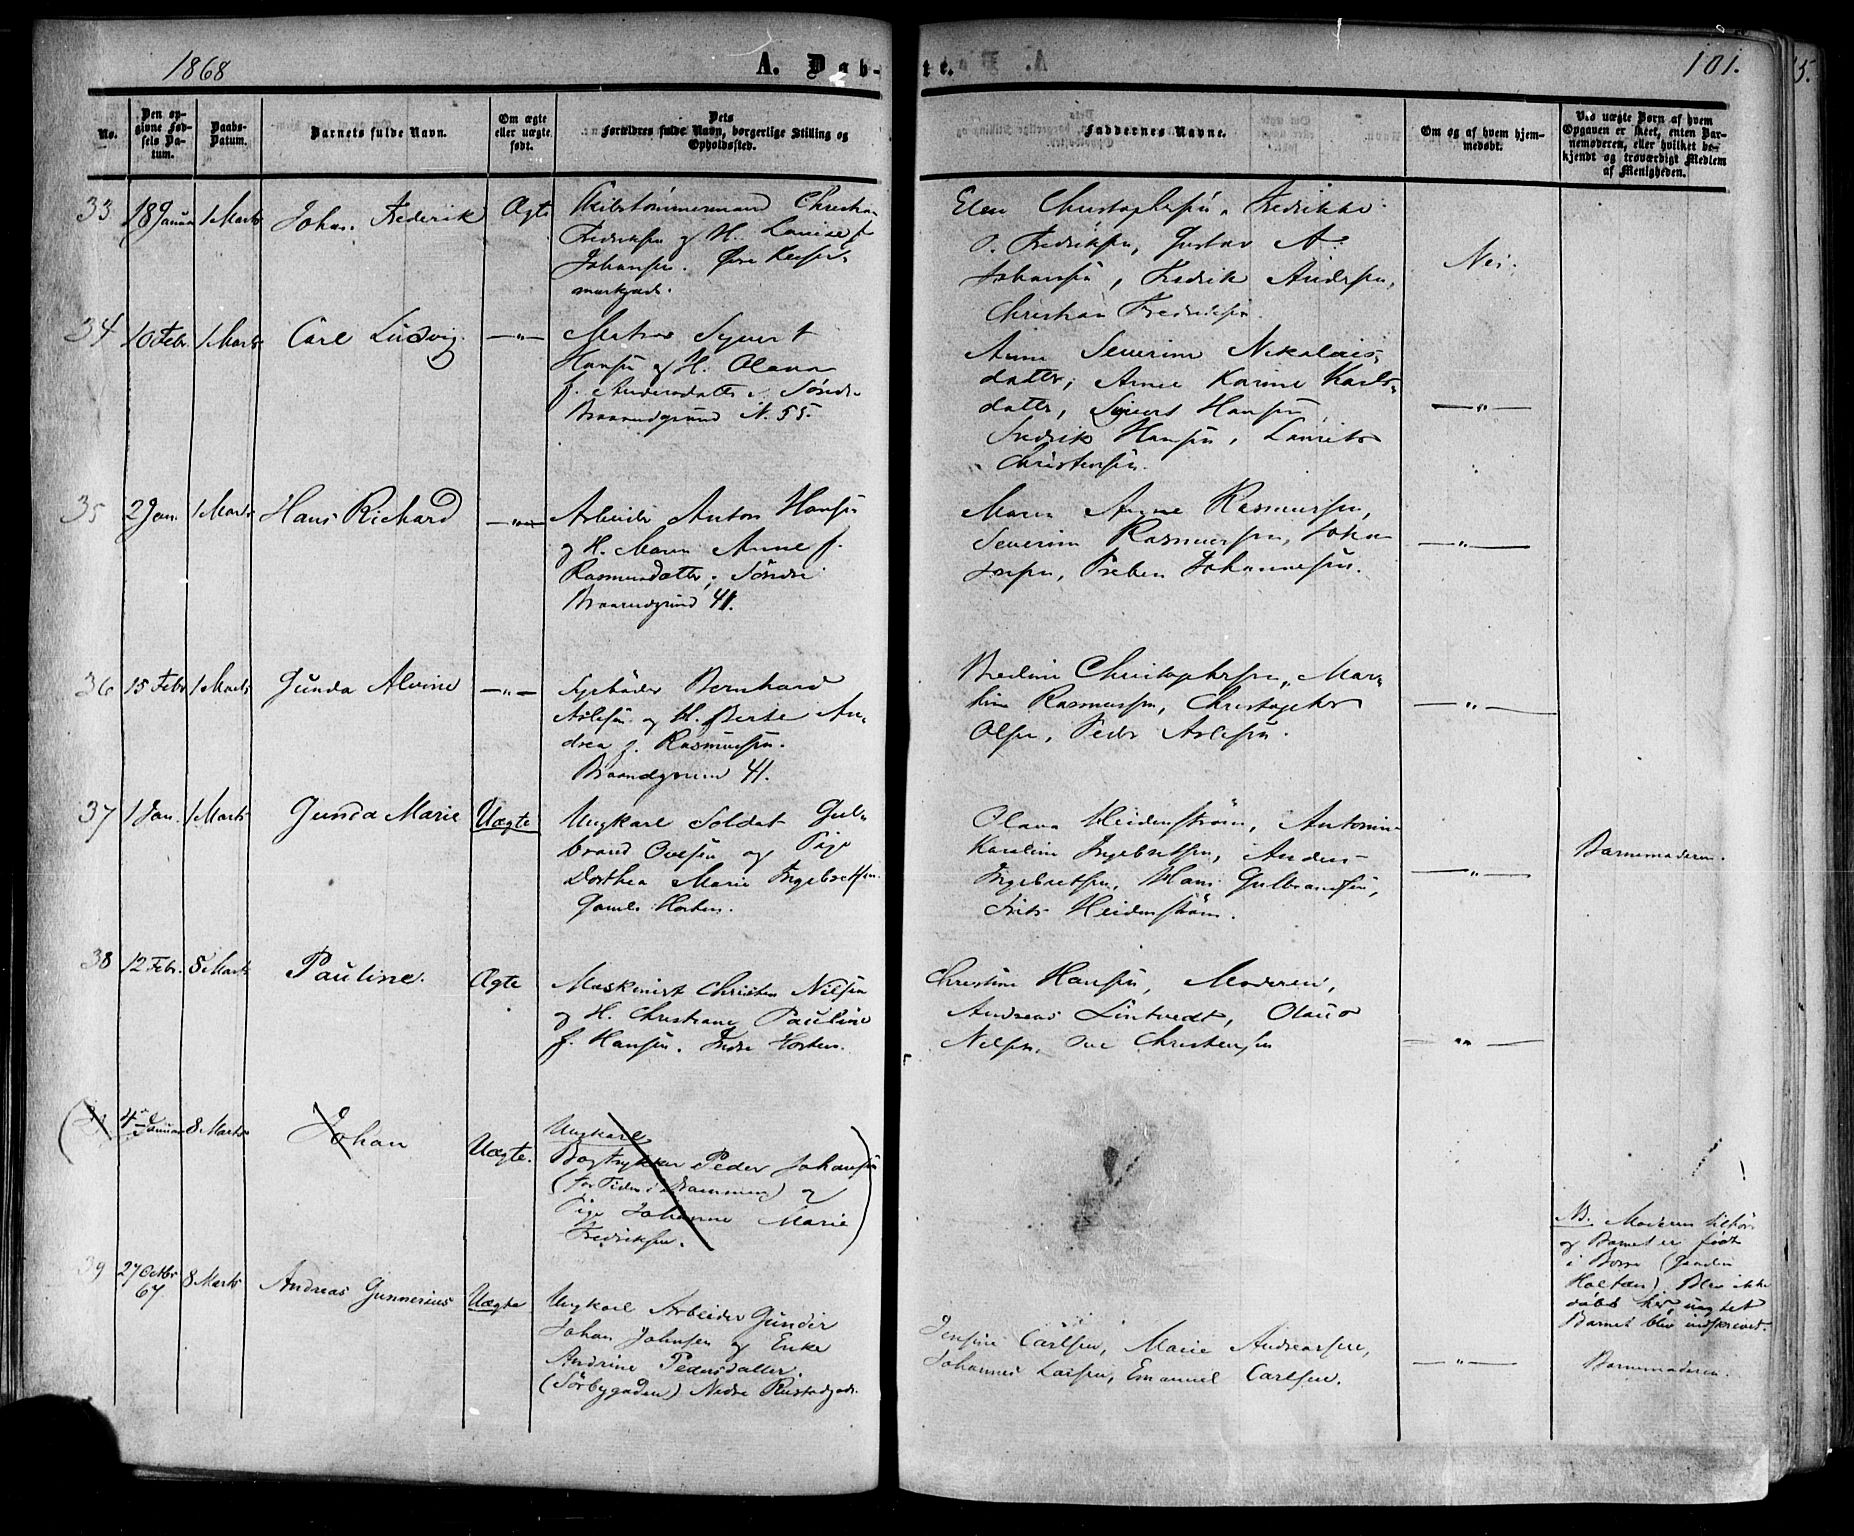 1868
A. Døb-
te.
101.
No.
Den op-
givne Fød-
sels Da-
tum.
Daabs-
Datum.
Barnets fulde Navn.
Om ægte
eller uægte
født.
Dets
Forældres fulde Navn, borgerlige Stilling og
Opholdssted.
Faddernes Navne.
Om og af hvem hjem-
medøbt.
Ved uægte Børn af hvem
Opgaven er skeet, enten Bar-
nemoderen, eller hvilket be-
kjendt og troværdigt Medlem
af Menigheden.
33 18 Januar 1 Marts Johan Frederik Ægte Skibstømmermand Christian
Fredriksen og H. Louise f.
Johansen. Øvre Keiser-
markgade.
Elen Christophersen, Fredrikke
O. Fredriksen, Gustav A.
Johansen, Fredrik Andersen,
Christian Fredriksen.
Nei.
34 10 Febr 1 Marts Carl Ludvig. —„— Matros Syvert
Hansen og H. Olava
f. Andersdatter i Søndre
Braarudgrund N. 55.
Anne Severine Nikolais-
datter, Anne Karine Karls-
datter, Syvert Hansen,
Fredrik Hansen, Laurits
Christensen.
—„—
35 2 Jan. 1 Marts Hans Richard —„— Arbeider Anton Hansen
og H. Maren Anne f.
Rasmusdatter, Søndre
Braarudgrund 41.
Maren Anne Rasmussen,
Severin Rasmussen, Johan
Preben Johannesen.
—„—
36 15 Febr 1 Marts Gunda Alvine —„— Bernhard
Aslesen og H. Berte An-
drea f. Rasmussen.
Braarudgrund 41.
Christophersen, Mar-
tine Rasmussen, Christopher
Olsen, Peder Aslesen.
—„—
37 1 Jan. 1 Marts Gunda Marie Uægte Ungkarl Soldat Gul-
brand Ovesen og Pige
Dorthea Marie Ingebretsen.
Gamle Horten.
Olava Heidenstrøm, Antonin
Karoline Ingebretsen, Anders
Ingebretsen, Hans Gulbrandsen,
Frits Heidenstrøm.
—„—
Barnemoderen.
38 12 Febr. 8 Marts Pauline. Ægte Maskinist Christen Nilsen
og H. Christiane Pauline
f. Hansen. Indre Horten.
Christine Hansen, Moderen,
Andreas Lintvedt, Olaus
Nilsen, Ole Christensen
—„—
4de Januar 8 Marts Johan Uægte. Ungkarl
Bogtrykker Peder Johansen
(for Tiden i Drammen) og
Pige Johanne Marie
Fredriksen.
NB. Moderen tilhør
og Barnet er født
i Borre (Gaarden
Holtan) Blev ikke
døbt her, uagtet
Barnet blev indskrevet.
39 27 Octbr
67 8 Marts Andreas Gunnerius Uægte Ungkarl Arbeider Gunder
Johan Johnsen og Enke
Andrine Pedersdatter.
(Sørbygaden) Nedre Rustadgade.
Jensine Carlsen, Marie Andreassen,
Johannes Larsen, Emanuel Carlsen.
—„—
Barnemoderen.